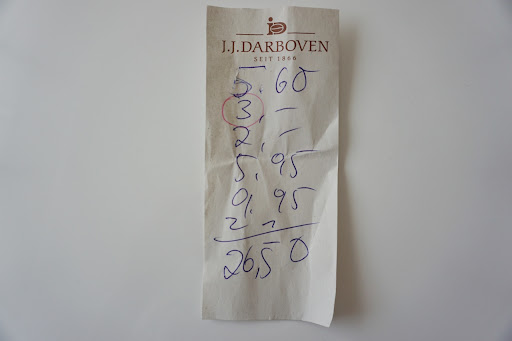 J.J.DARBOVEN
SEIT 1866
5.60
3,-
2,-
5,95
9,95
2 2
26,50